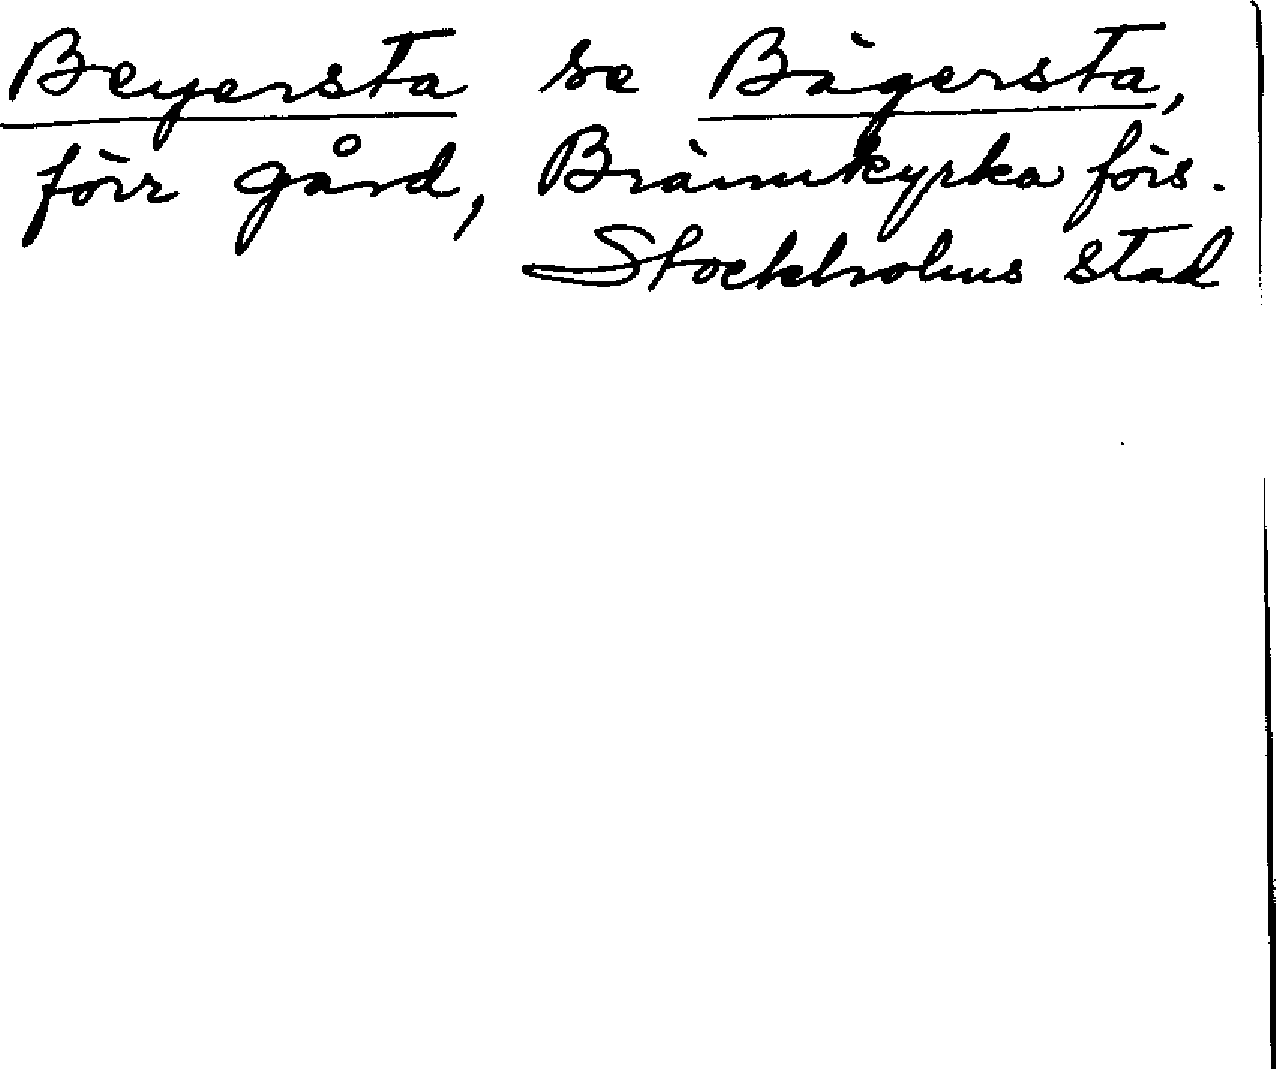 Beyersta se Bägersta,
förr gård, Brännkyrka förs.
Stockholms stad